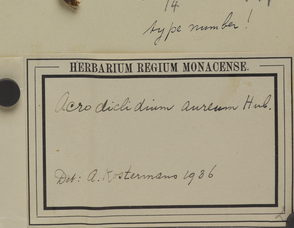 14
type number!
HERBARIUM REGIUM MONACENSE.
Acrodiclidium aureum Hub.
Det: A. Kostermans 1936